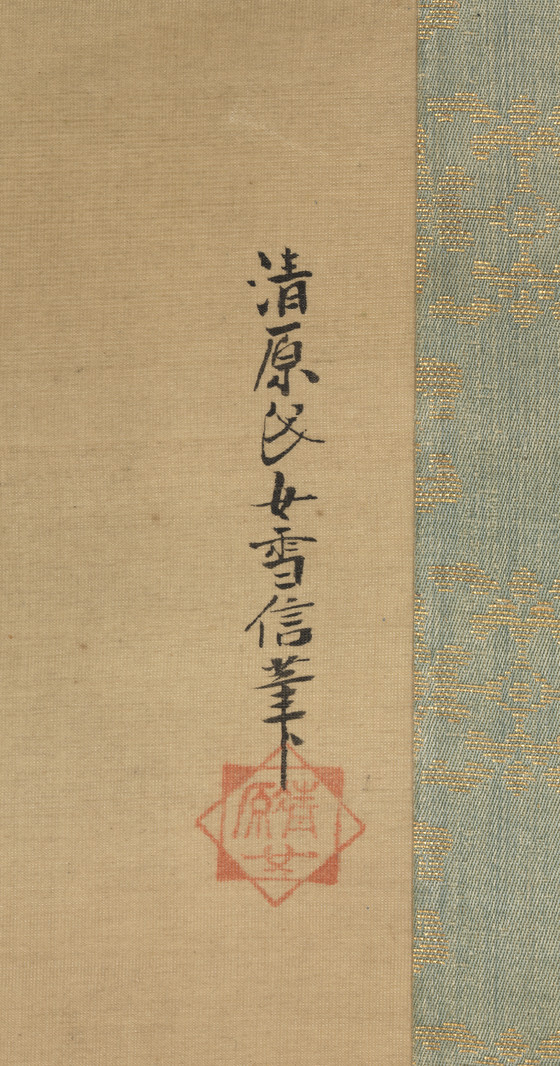 清原氏女雪信筆
清原女